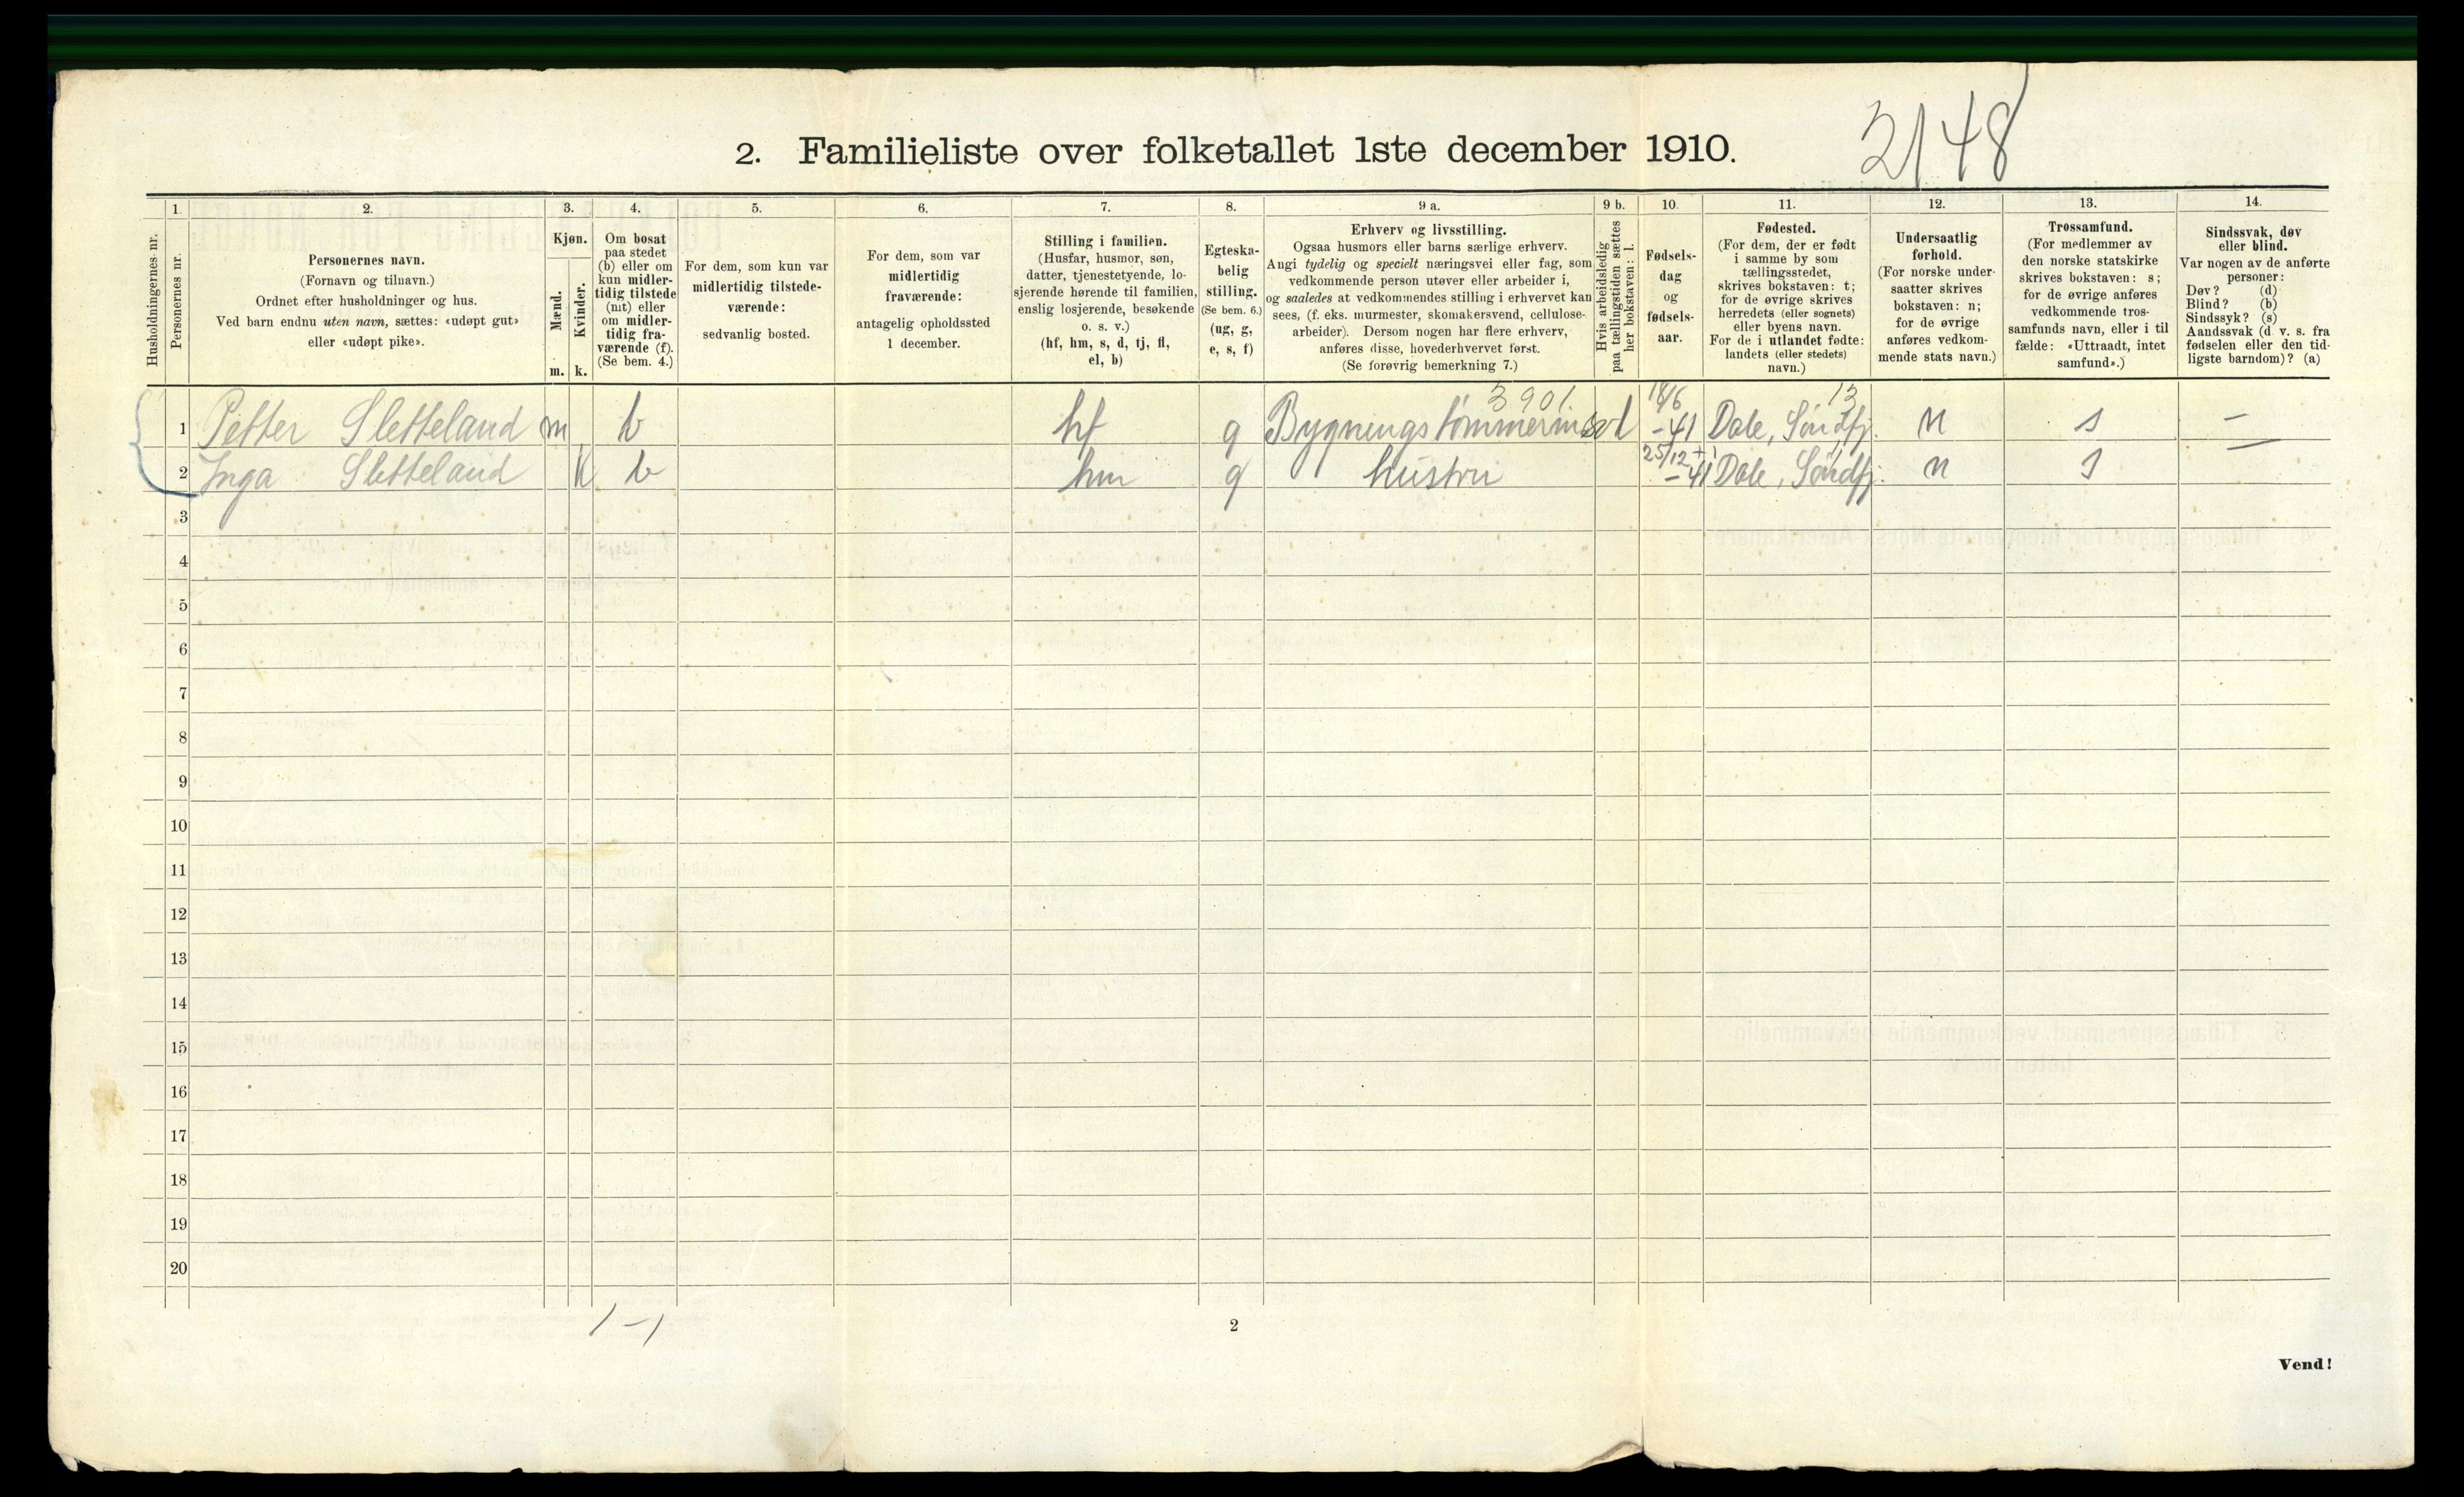 2. Familieliste over folketallet 1ste december 1910.
2148
Husholdningernes nr.
1.
Personernes nr.
2.
Personernes navn.
(Fornavn og tilnavn.)
Ordnet efter husholdninger og hus.
Ved barn endnu uten navn, sættes: «udøpt gut»
eller «udøpt pike».
3.
Kjøn.
Mænd.
Kvinder.
m.
k.
4.
Om bosat
paa stedet
(b) eller om
kun midler-
tidig tilstede
(mt) eller
om midler-
tidig fra-
værende (f).
(Se bem. 4.)
5.
For dem, som kun var
midlertidig tilstede-
værende:
sedvanlig bosted.
6.
For dem, som var
midlertidig
fraværende:
antagelig opholdssted
1 december.
7.
Stilling i familien.
(Husfar, husmor, søn,
datter, tjenestetyende, lo-
sjerende hørende til familien,
enslig losjerende, besøkende
o. s. v.)
(hf, hm, s, d, tj, fl,
el, b)
8.
Egteska-
belig
stilling.
(Se bem. 6.)
(ug, g,
e, s, f)
9 a.
Erhverv og livsstilling.
Ogsaa husmors eller barns særlige erhverv.
Angi tydelig og specielt næringsvei eller fag, som
vedkommende person utøver eller arbeider i,
og saaledes at vedkommendes stilling i erhvervet kan
sees, (f. eks. murmester, skomakersvend, cellulose-
arbeider). Dersom nogen har flere erhverv,
anføres disse, hovederhvervet først.
(Se forøvrig bemerkning 7.)
9 b.
Hvis arbeidsledig
paa tællingstiden sættes
her bokstaven: l.
10.
Fødsels-
dag
og
fødsels-
aar.
11.
Fødested.
(For dem, der er født
i samme by som
tællingsstedet,
skrives bokstaven: t;
for de øvrige skrives
herredets (eller sognets)
eller byens navn.
For de i utlandet fødte:
landets (eller stedets)
navn.)
12.
Undersaatlig
forhold.
(For norske under-
saatter skrives
bokstaven: n;
for de øvrige
anføres vedkom-
mende stats navn.)
13.
Trossamfund.
(For medlemmer av
den norske statskirke
skrives bokstaven: s;
for de øvrige anføres
vedkommende tros-
samfunds navn, eller i til
fælde: «Uttraadt, intet
samfund».)
14.
Sindssvak, døv
eller blind.
Var nogen av de anførte
personer:
Døv? (d)
Blind? (b)
Sindssyk? (s)
Aandssvak (d. v. s. fra
fødselen eller den tid-
ligste barndom)? (a)
3901. 13
1 Petter Sletteland m b hf g l 18/6 -41 Dale, Søndfj. n s –
2 Inga Sletteland k b hm g hustru 25/12 -41 Dale, Søndfj. n s –
3
4
5
6
7
8
9
10
11
12
13
14
15
16
17
18
19
20
1-1
2
Vend!